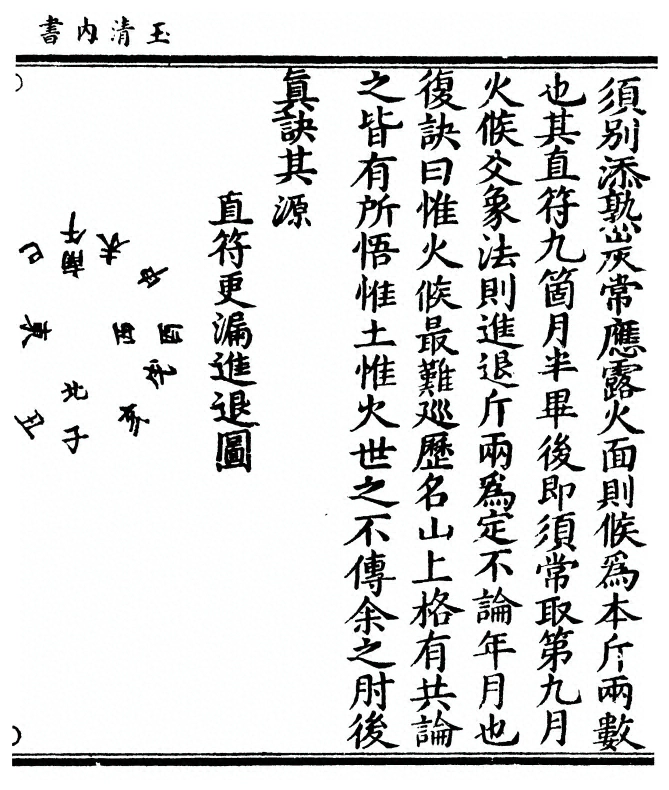 玉清内書
須別添熟炭常應露火面則候爲本斤兩數
也其直符九箇月半畢後即須常取第九月
火候爻象法則進退斤兩爲定不論年月也
復訣曰惟火候最難巡歷名山上格有共論
之皆有所悟惟土惟火世之不傳余之肘後
眞訣其源
直符更漏進退圖
午
南
未
巳
申
東
西
酉
戌
北
亥
子
丑